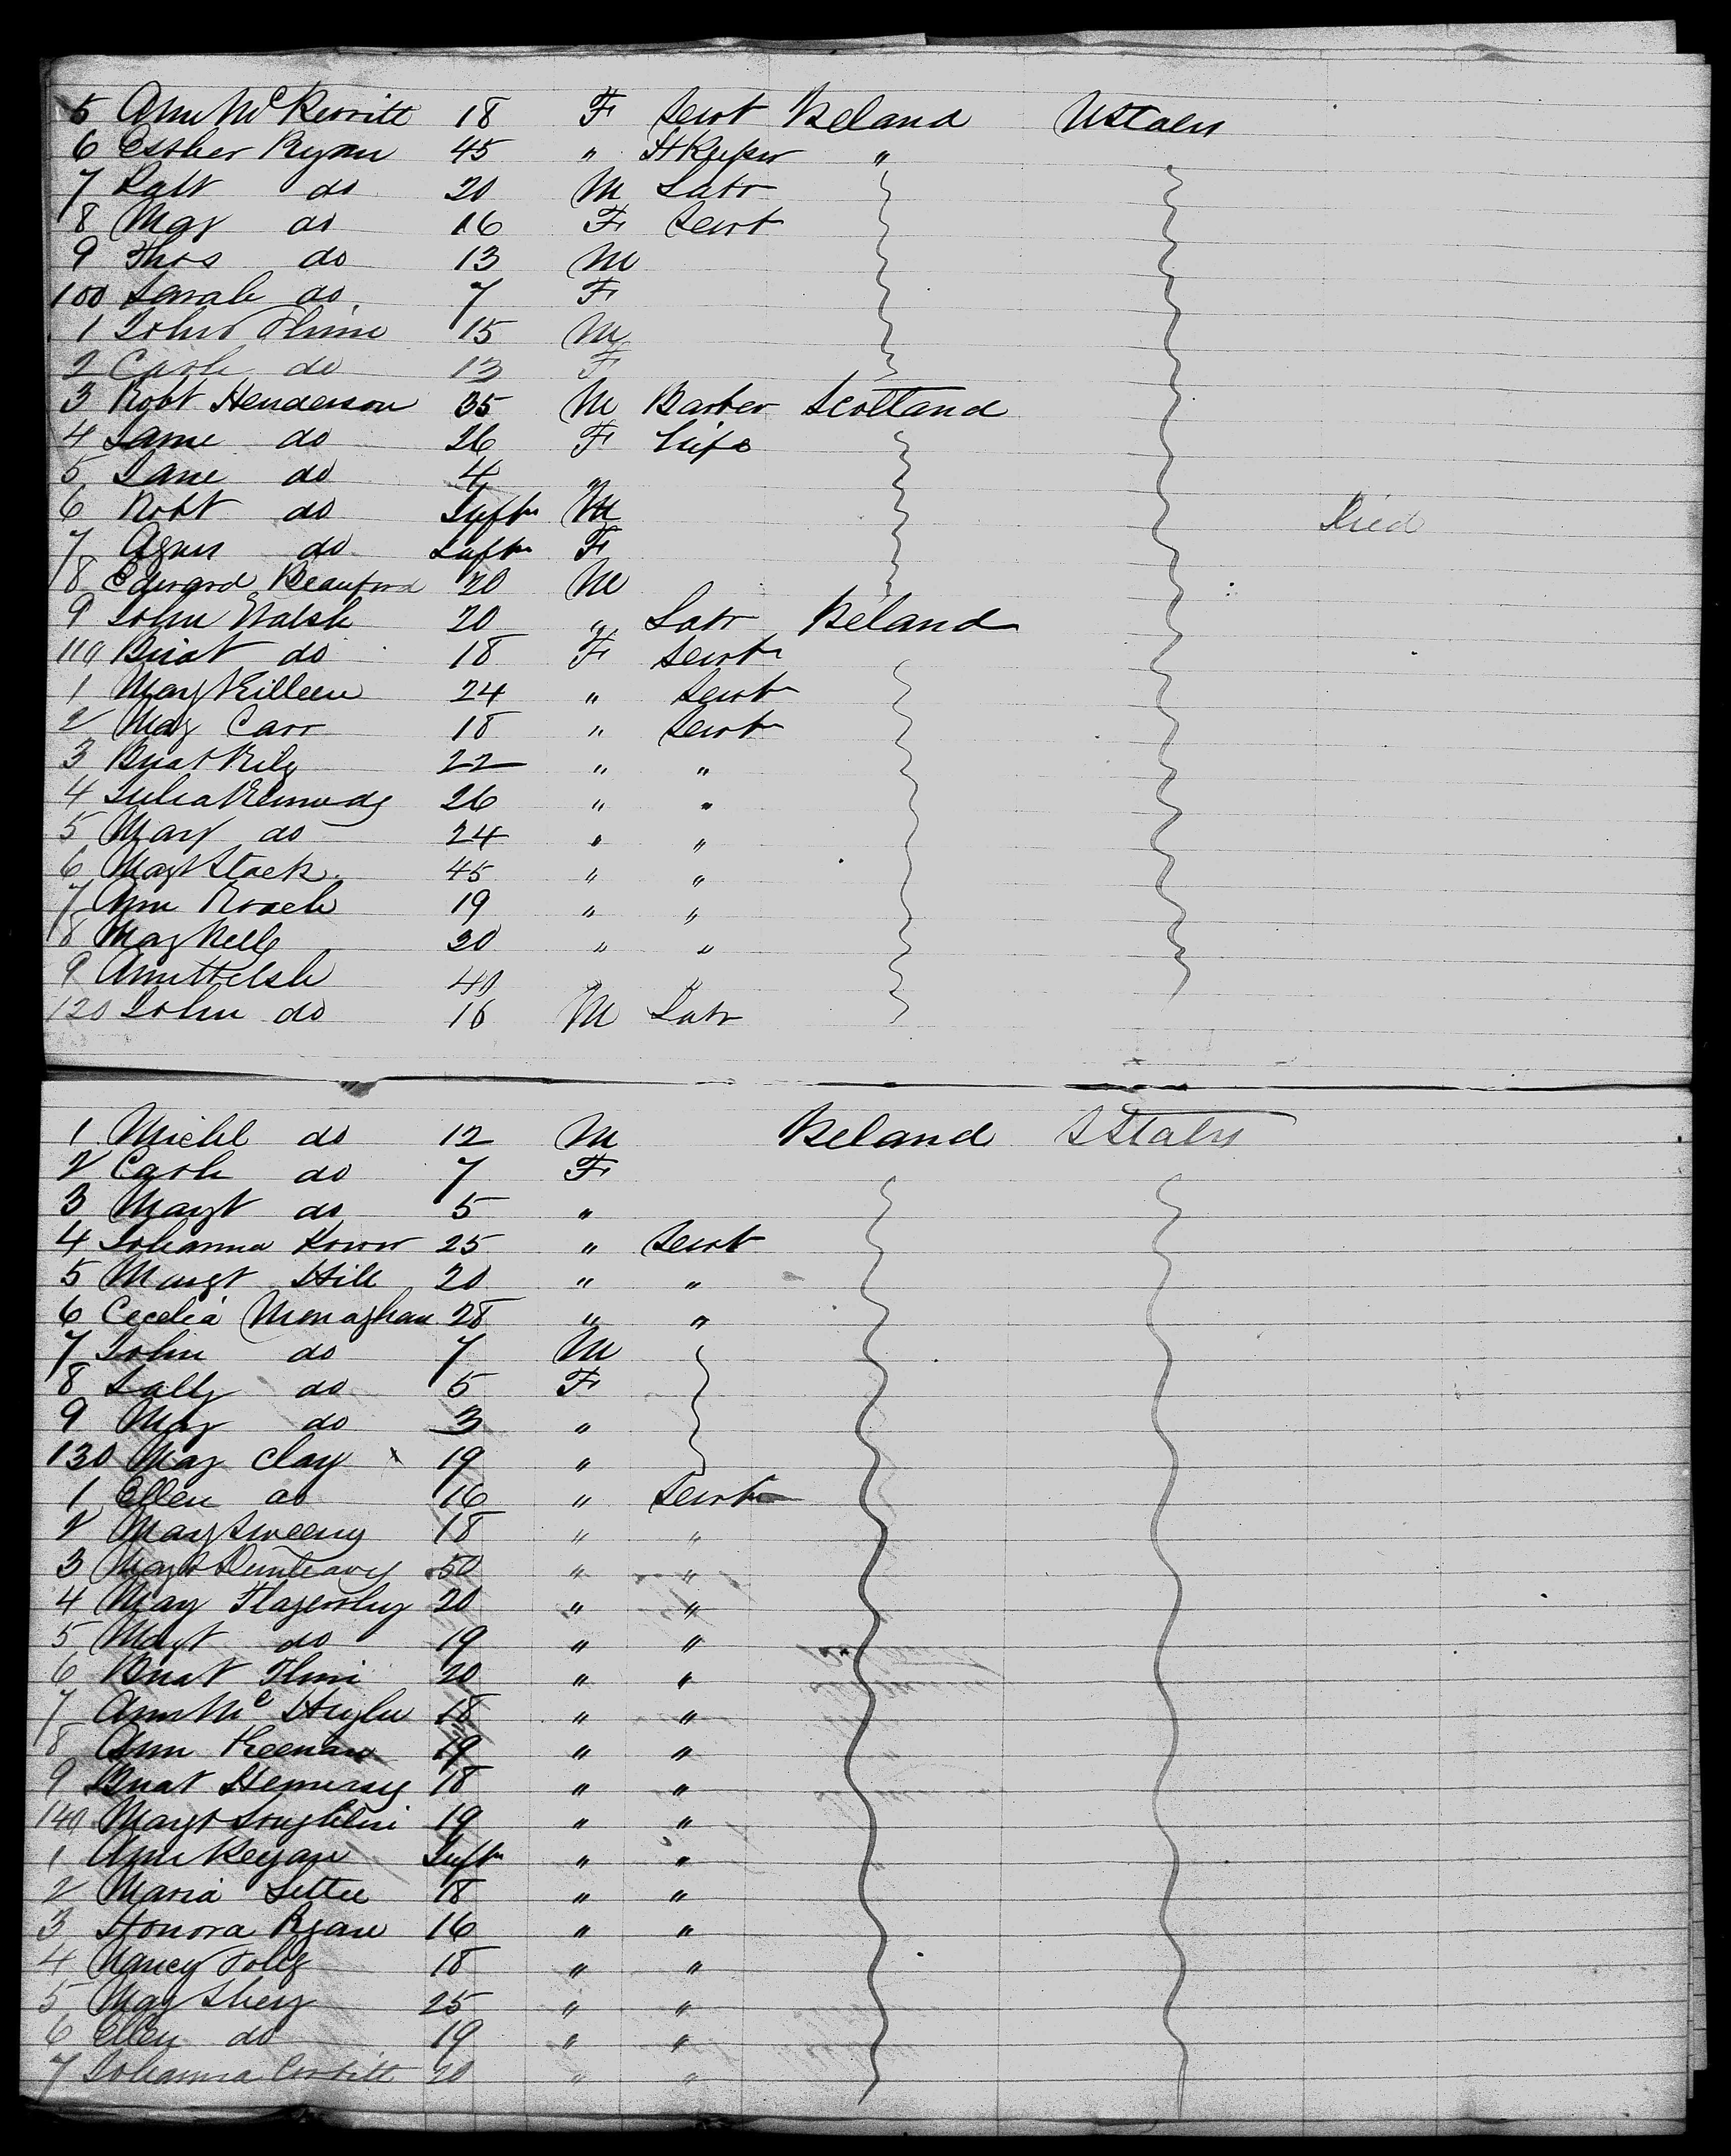 5 Ann McKerritt 18 F Servt Ireland UStates
6 Esther Ryan 45 " HKeeper "
7 Patt do 20 M Labr
8 Mary do 16 F Servt
9 Thos do 13 M
100 Sarah do 7 F
1 John Flinn 15 M
2 Cath do 13 F
3 Robt Henderson 35 M Barber Scotland
4 Jane do 26 F Wife
5 Jane do 4 "
6 Robt do Inft M Died
7 Agnes do Inft F
8 Edward Beauford 20 M
9 John Walsh 20 " Labr Ireland
110 Bridt do 18 F Servt
1 Mary Killeen 24 " Servt
2 Mary Carr 18 " Servt
3 Bridt Rily 22 " "
4 Julia Kennedy 26 " "
5 Mary do 24 " "
6 Margt Stack 45 " "
7 Ann Roach 19 " "
8 Mary Kelly 30 " "
9 Ann Welsh 40 " "
120 John do 16 M Labr
1 Michl do 12 M Ireland UStates
2 Cath do 7 F
3 Margt do 5 "
4 Johanna 25 " Servt
5 Margt Hill 20 " "
6 Cecelia Monaghan 28 " "
7 John do 7 M
8 Sally do 5 F
9 Mary do 3 "
130 Mary Clay x 19 "
1 Ellen do 16 " Servt
2 Mary Sweeny 18 " "
3 Margt Dunleavy 50 " "
4 Mary Flagerthy 20 " "
5 Margt do 19 " "
6 Bridt Flinn 20 " "
7 Ann McHugh 18 " "
8 Ann Keenan 19 " "
9 Bridt Hennesy 18 " "
140 Margt Loughlin 19 " "
1 Ann Regan Inft " "
2 Maria 18 " "
3 Honora Ryan 16 " "
4 Nancy Foley 18 " "
5 Mary 25 " "
6 Ellen do 19 " "
7 Johanna Corbitt 20 " "